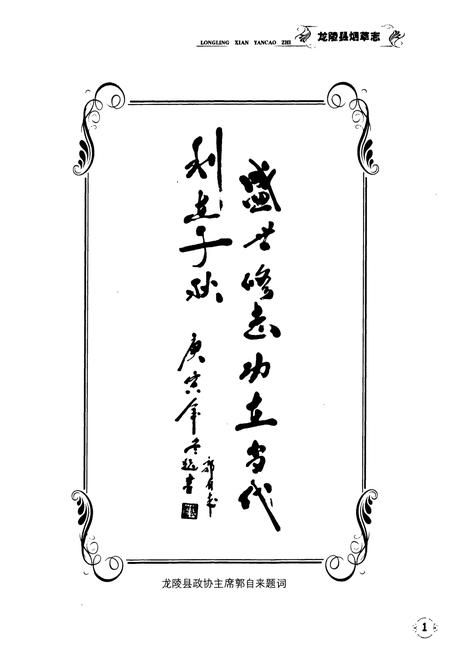 LONGLING XIAN YANCAO ZHI
龙陵县烟草志
盛世修志功立当代
利在千秋
庚寅年冬
郭自来
题书
龙陵县政协主席郭自来题词
1